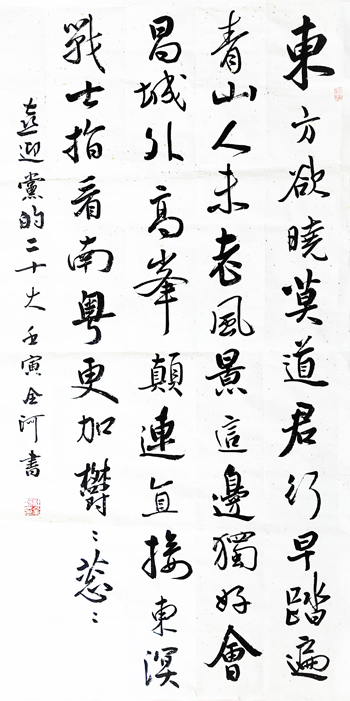 東方欲曉莫道君行早踏遍
青山人未老風景這邊獨好會
昌城外高峯顛連直接東溟
戰士指看南粵更加欝〻葱〻
喜迎黨的二十大壬寅全河書